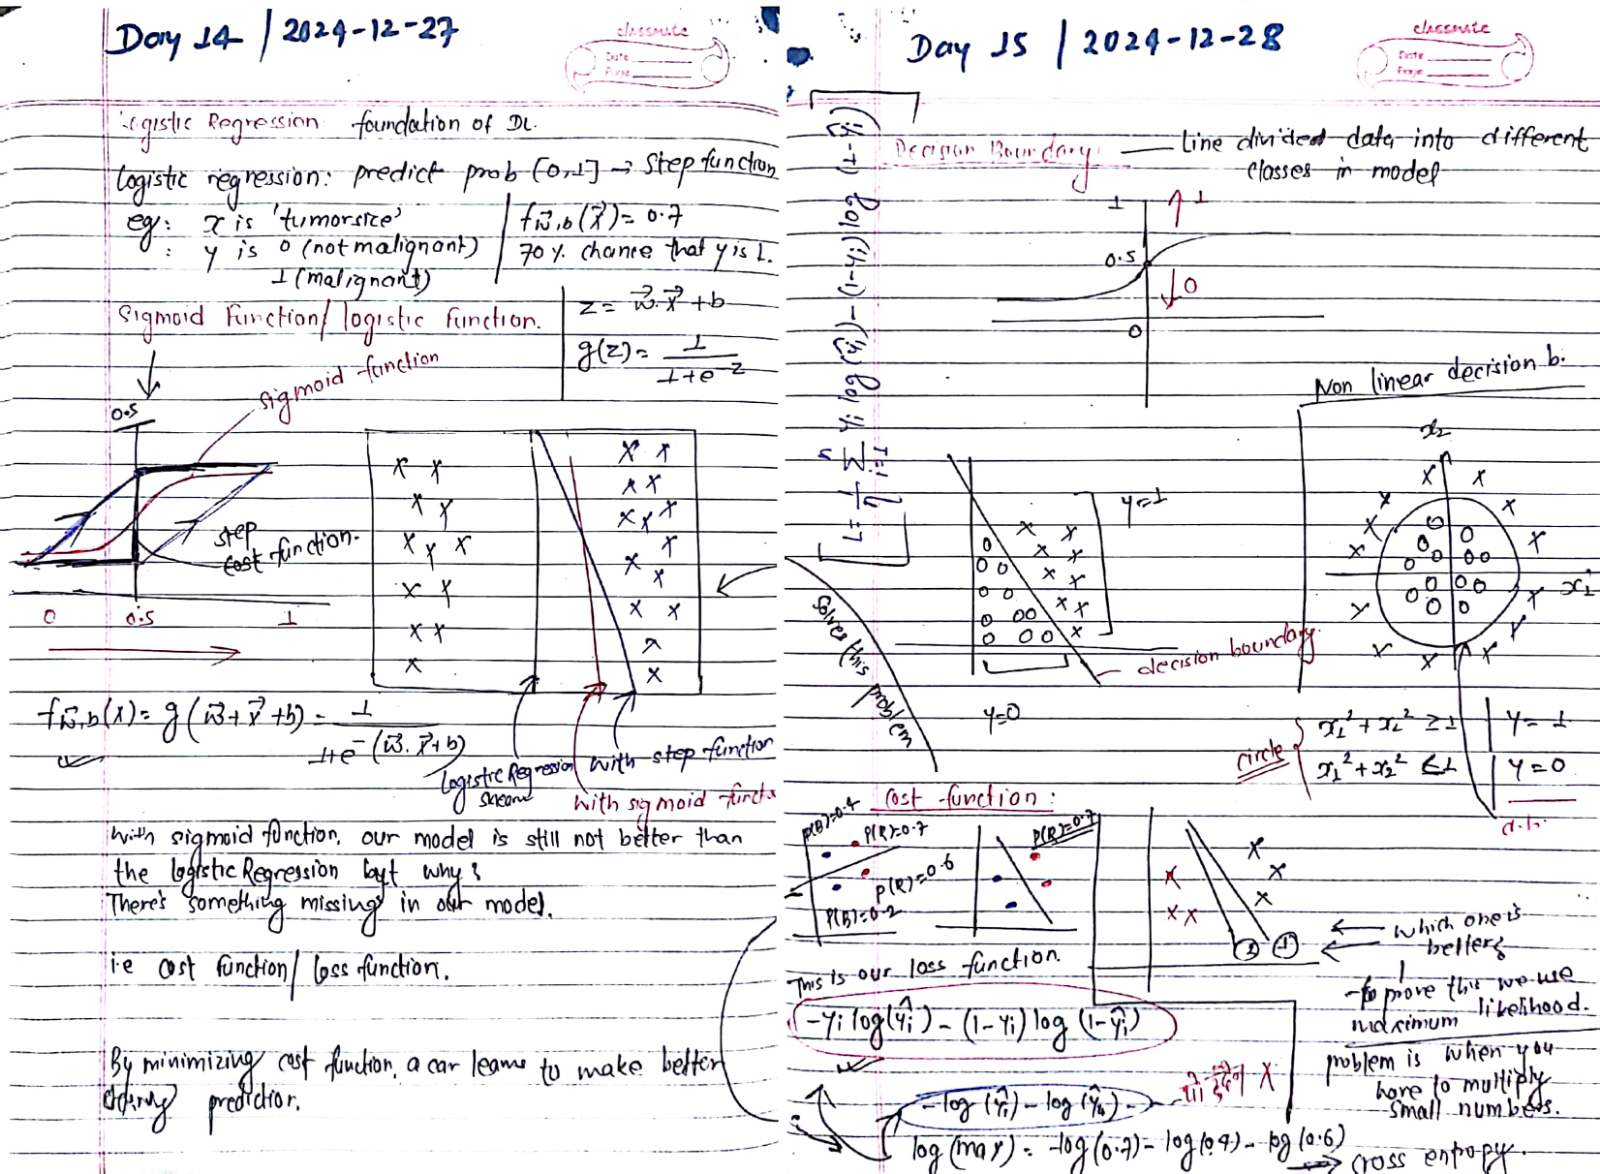 Day 14 / 2024-12-27
classmate
Date
Page
Logistic Regression foundation of DL.
Logistic regression: predict prob [0,1] → Step function
eg: x is 'tumorsize'
: y is 0 (not malignant)
1 (malignant)
f w⃗,b (x⃗) = 0.7
70 % chance that y is 1.
Sigmoid Function/ logistic function.
z = w⃗.x⃗ + b
g(z) = 1 / 1+e^-z
sigmoid function
0.5
step
cost function.
0 0.5 1
f w⃗,b (x) = g (w⃗+x⃗ +b) = 1 / 1+e^-(w⃗.x⃗+b)
Logistic Regression
with step function
with sigmoid functio
with sigmoid function, our model is still not better than
the logistic Regression but why?
There's something missing in our model.
i.e cost function/ loss function.
By minimizing cost function, a car learns to make better
prediction.
Day 15 / 2024-12-28
classmate
Date
Page
Decision Boundary: — Line divided data into different
classes in model
1 ↑ 1
0.5
↓ 0
0
L = 1/n Σ i=1 n yi log(ŷi) - (1-yi) log (1-ŷi)
solves this problem
Non linear decision b.
x2
x1
y=1
decision boundary
y=0
circle { x1² + x2² ≥ 1 | y = 1
x1² + x2² ≤ 1 | y = 0
d.b.
Cost function:
P(B)=0.4
P(R)=0.7
P(R)=0.6
P(B)=0.2
P(R)=0.7
2 1
← which one is
← better?
- to prove this we use
maximum likelihood.
This is our loss function.
-yi log(ŷi) - (1-yi) log (1-ŷi)
problem is when you
have to multiply
small numbers.
-log (ŷi) - log (ŷi) -
log (max) = -log(0.7) - log(0.4) - log (0.6)
→ cross entropy.